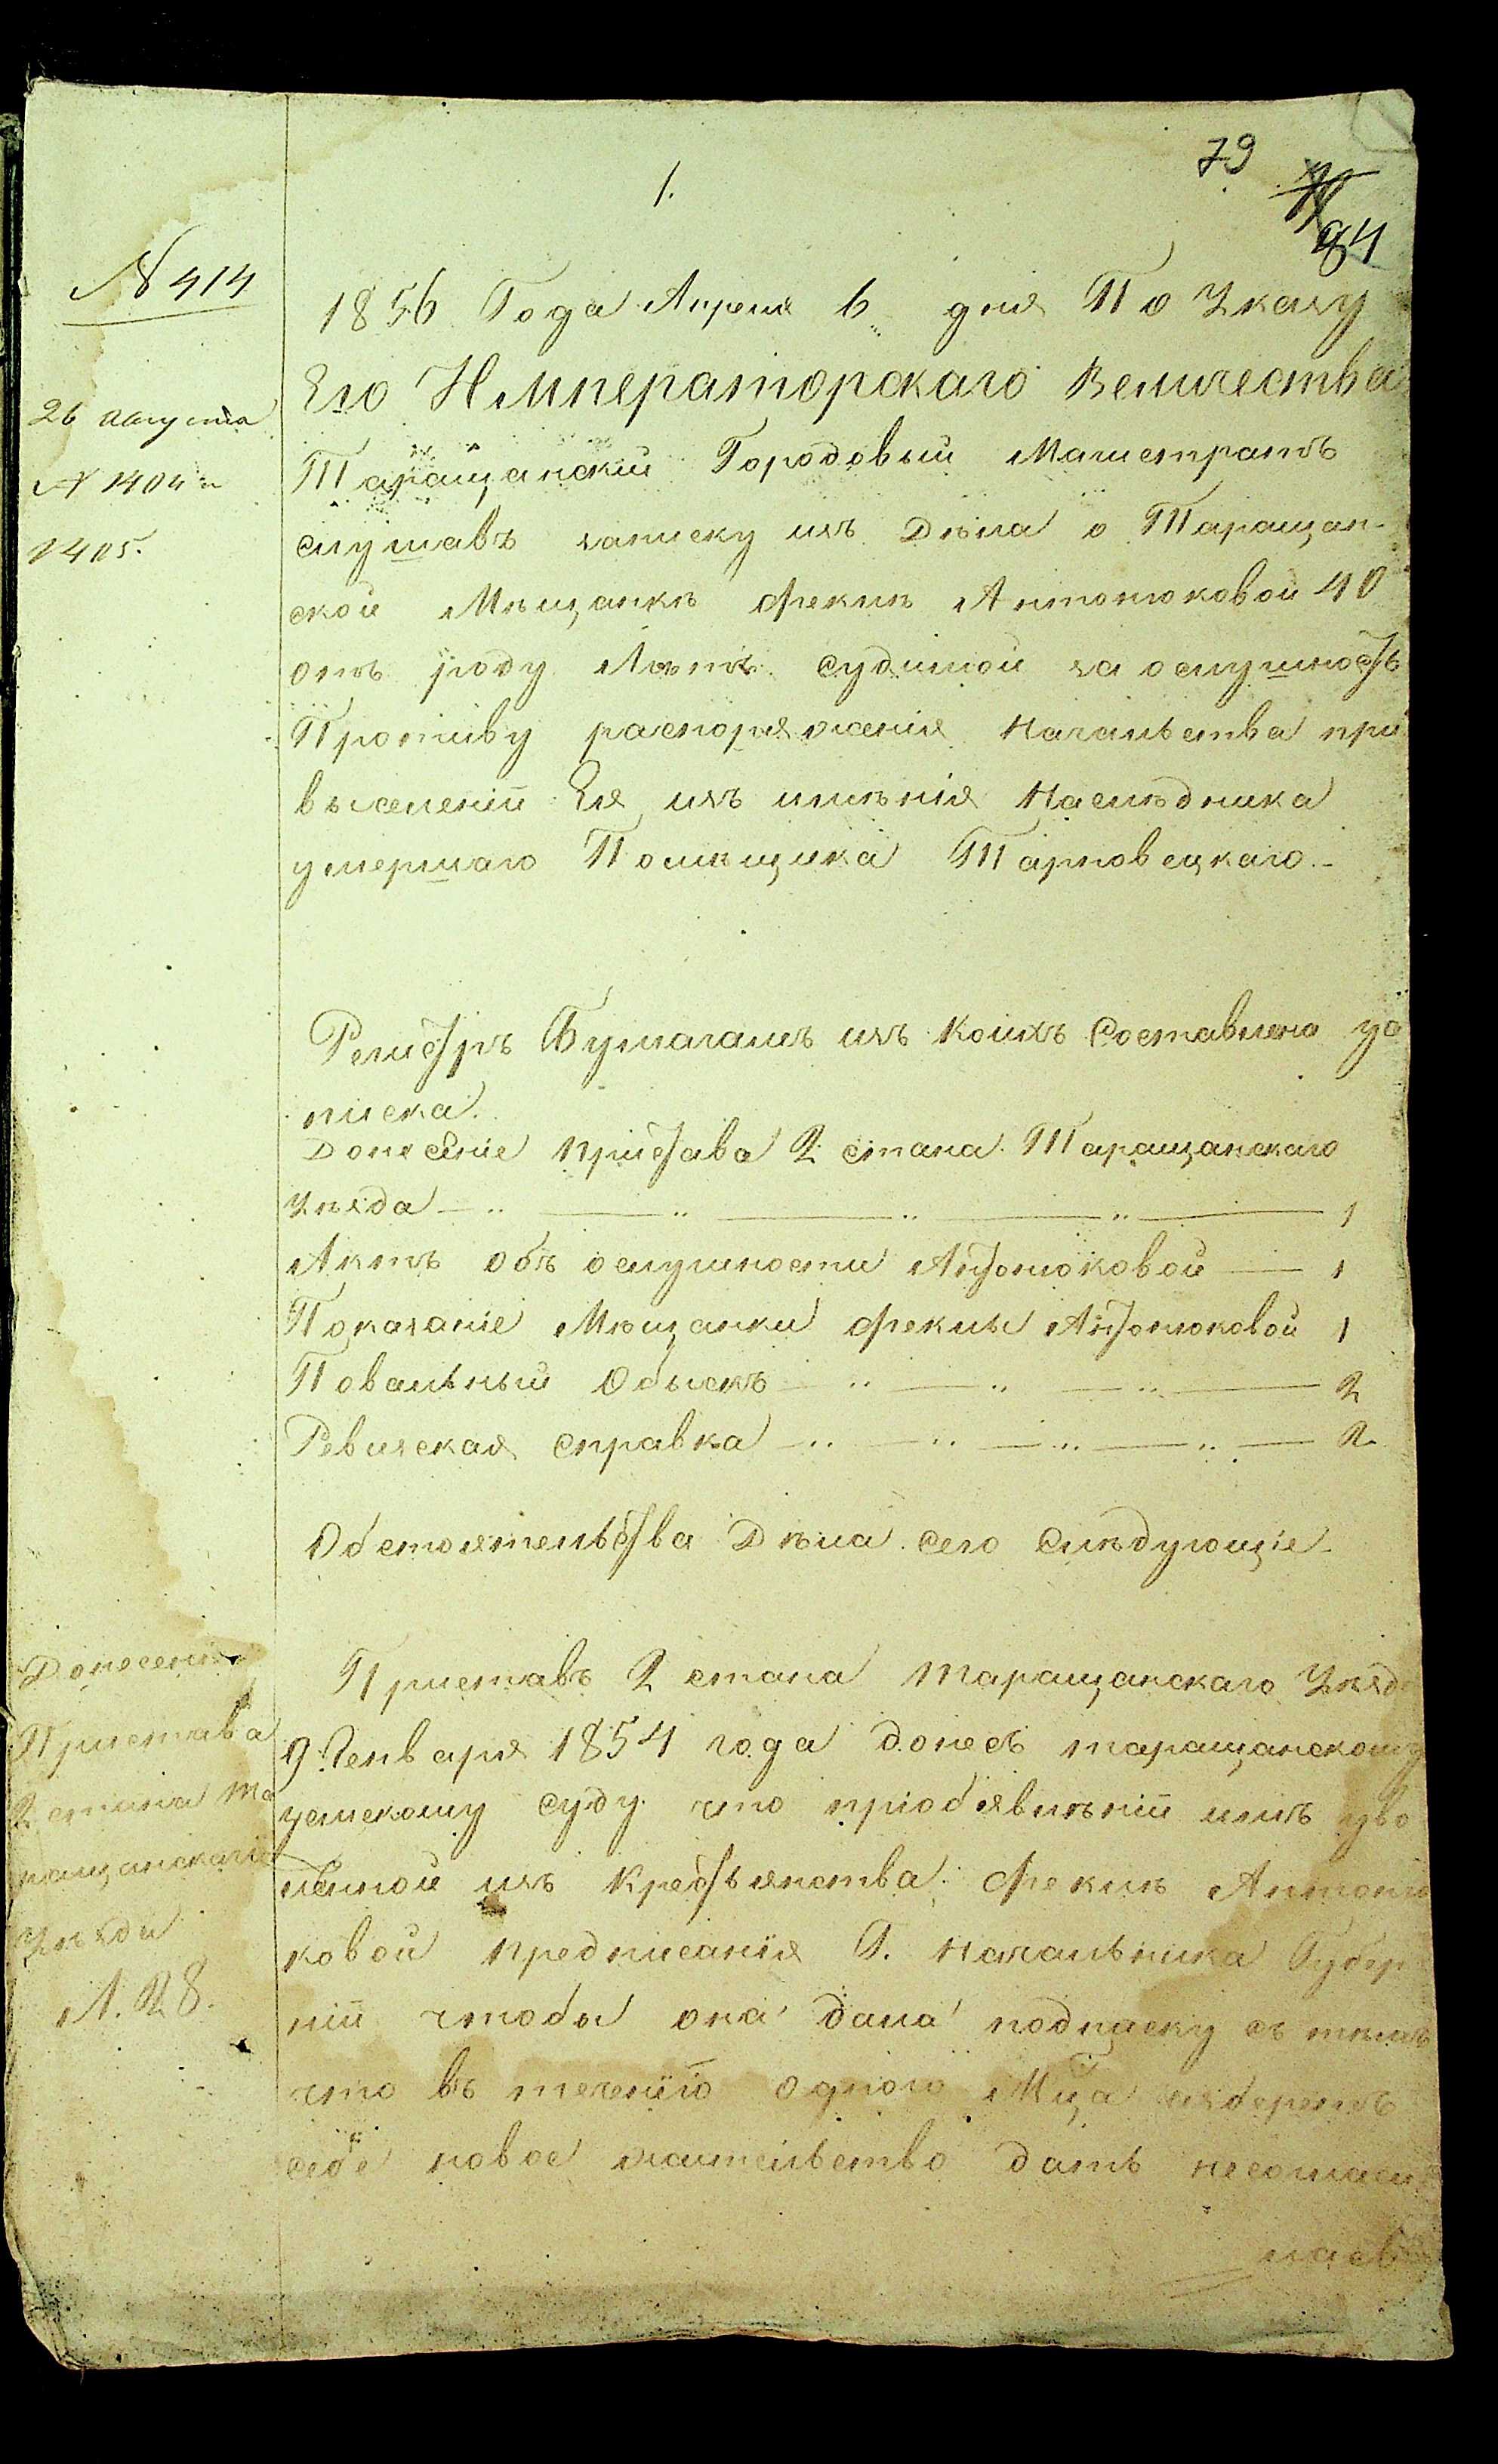 79
1.
84
№ 414
1856 Года Апреля 6 дня По Указу
Его Императорскаго Величества
26 августа
Таращанскій Городовый Магистратъ
№ 1404 и
слушавъ записку изъ Дѣла о Таращан-
1405.
ской Мѣщанкѣ Фекли Антонюковой 40
отъ роду Лѣтъ судимой за ослушность
Противу распоряженія Начальства при
выселеніи Ея изъ имѣнія Наслѣдника
умершаго Помѣщика Тарновецкаго.
Регистръ Бумагамъ изъ коихъ Составлена за
писка.
Донесеніе пристава 2 стана Таращанскаго
Уѣзда 1
Актъ объ ослушности Антонюковой 1
Показаніе Мѣщанки Феклы Антонюковой 1
Повальный Обыскъ 2
Ревизская справка 2
Обстоятельства Дѣла сего Слѣдующіе
Донесеніе
Приставъ 2 стана таращанскаго Уѣзда
Пристава
9 Генваря 1854 года донесъ таращанскому
2 стана та
земскому суду что пріобявленіи имъ уво
ращанскаго
леной изъ Крестьянства Феклѣ Антоню
Уѣзда
ковой предписанія Г. Начальника Губер
Л. 28.
ніи чтобы она дала подписку съ тѣмъ
что въ теченію одного Мца изберетъ
себе новое жительство дать несогласи
лась